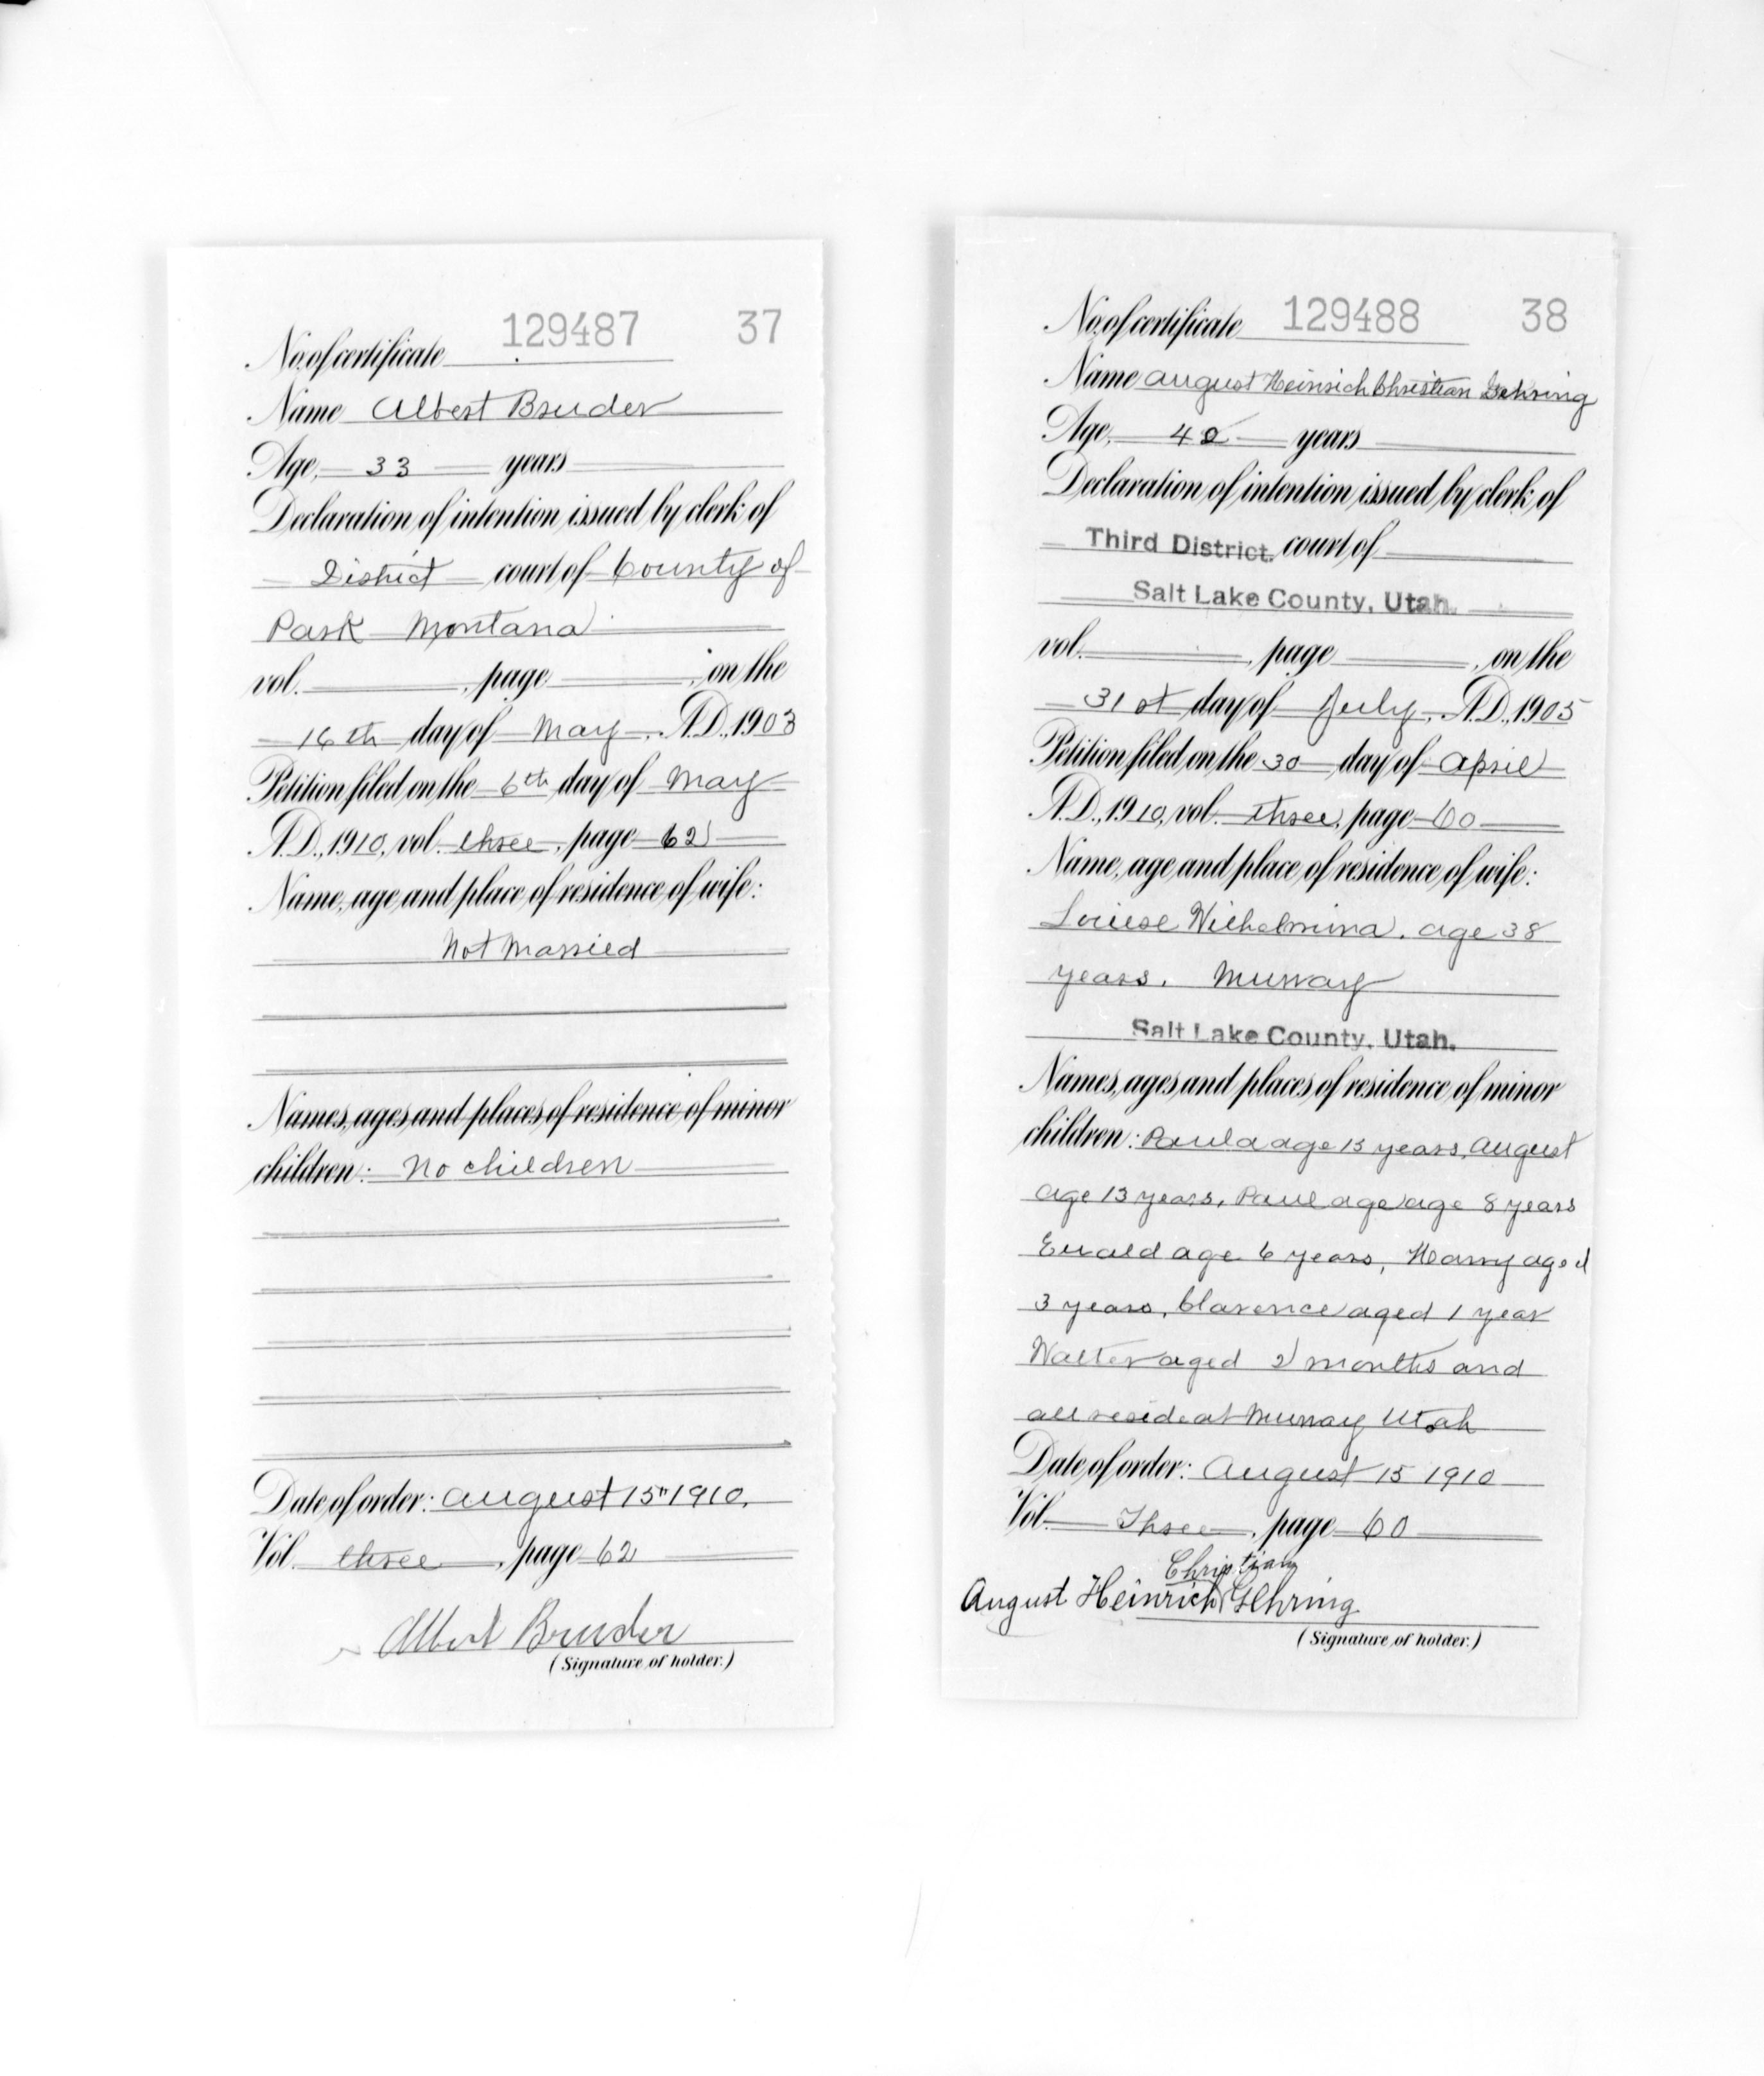 129487 37
No. of certificate
Name Albert Bruder
Age, 33 years
Declaration of intention issued by clerk of
District court of County of
Park Montana
vol. , page , on the
16th day of May , A.D., 1903
Petition filed on the 6th day of May
A.D., 1910, vol. three, page 62
Name, age and place of residence of wife:
Not Married
Names, ages and places of residence of minor
children: No children
Date of order: August 15" 1910.
Vol. three , page 62
Albert Bruder
(Signature of holder.)
No. of certificate 129488 38
Name August Heinrich Christian Gehring
Age, 42 years
Declaration of intention issued by clerk of
Third District. court of
Salt Lake County, Utah.
vol. , page , on the
31st day of July, A.D., 1905
Petition filed on the 30 day of April
A.D., 1910, vol. three, page 60
Name, age and place of residence of wife:
Louiese Wilhelmina. age 38
years. Murray
Salt Lake County, Utah.
Names, ages and places of residence of minor
children: Paula age 15 years, August
age 13 years, Paul age age 8 years
Ewald age 6 years, Harry aged
3 years, Clarence aged 1 year
Walter aged 2 months and
all reside at Murray Utah
Date of order: August 15 1910
Vol. Three , page 60
Christian
August Heinrich Gehring
(Signature of holder.)